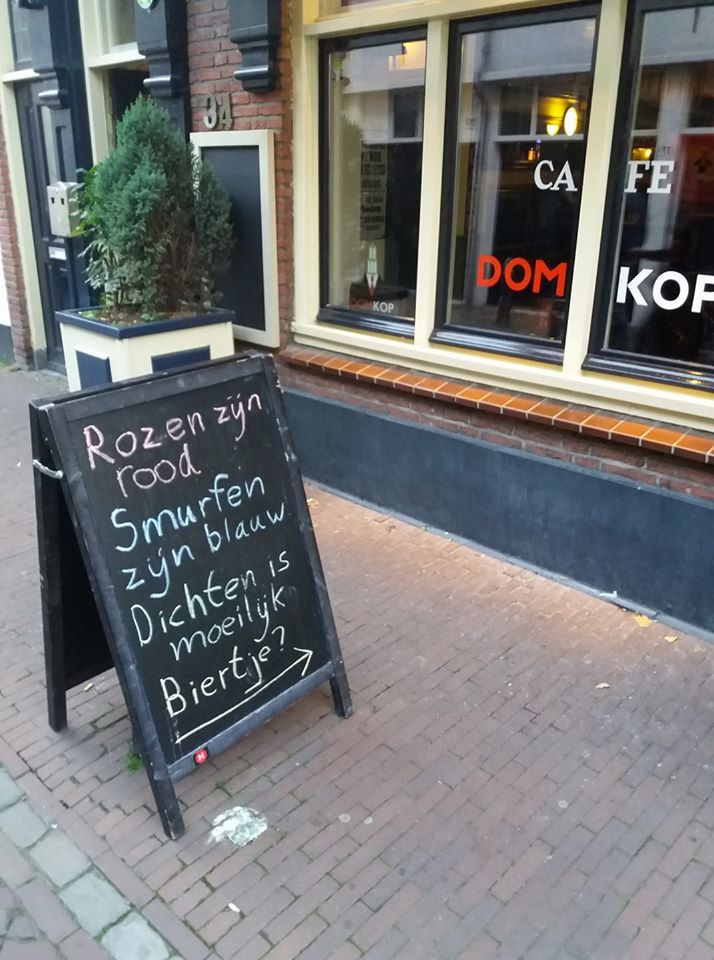 34
CAFE
DOMKOP
DOMKOP
Rozen zijn
rood
Smurfen
zijn blauw
Dichten is
moeilijk
Biertje?